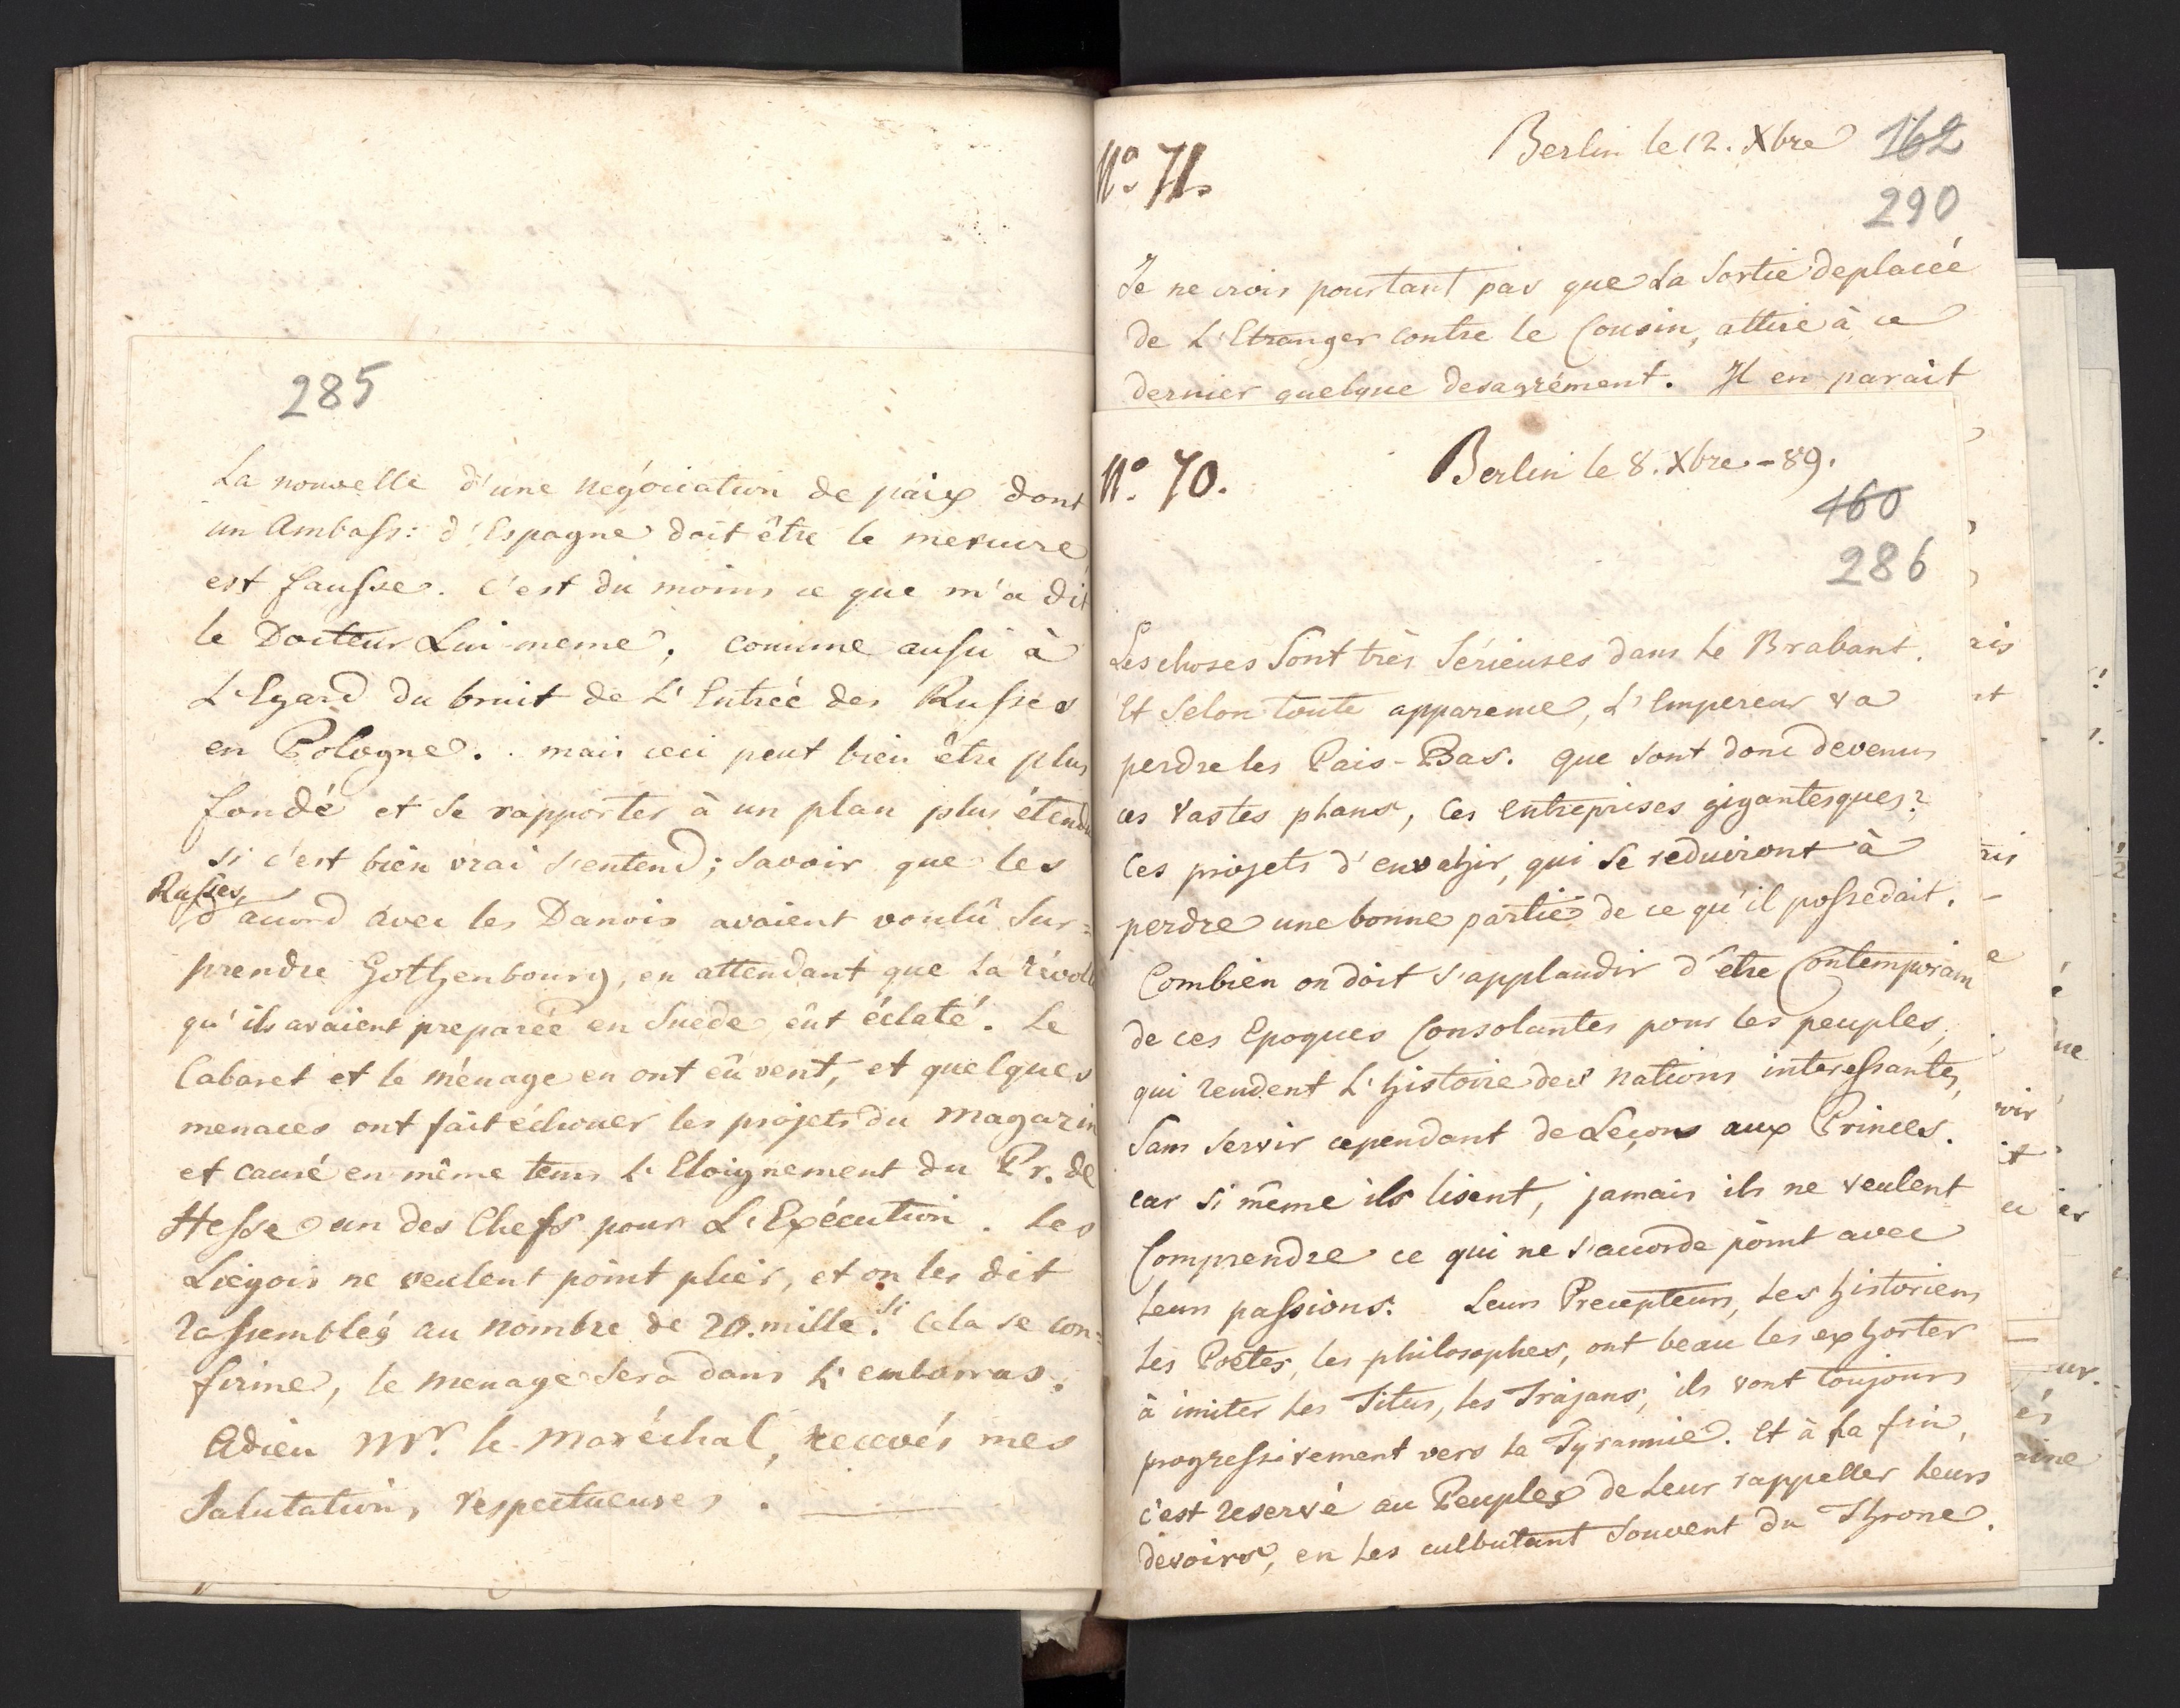 285
La nouvelle d'une négociation de paix dont
un Ambass: d'Espagne doit être le mercure
est fausse. c'est du moins ce que m'a dit
le Docteur Lui-meme, comme aussi à
L'Egard du bruit de L'Entrée des Russes
en Pologne. mais ceci peut bien être plus
fondé et se rapporter à un plan plus étendu
si c'est bien vrai s'entend; savoir que les
Russes
d'acord avec les Danois avaient voulû sur=
prendre Gothenbourg, en attendant que la révolte
qu'ils avaient preparée en Suede eût éclaté. Le
Cabaret et le ménage en ont eû vent, et quelques
menaces ont fait échouer les projets du magazin
et causé en même tems L'Eloignement du Pr. de
Hesse un des Chefs pour L'Exécution. Les
Liégois ne veulent point plier, et on les dit
rassemblés au nombre de 20.mille. Si cela se con=
firme, le menage sera dans L'embarras.
Adieu Mr. le Maréchal, recevés mes
Salutations respectueuses.
No. 71.
Berlin le 12. Xbre
162
290
Je ne crois pourtant pas que La Sortie deplacée
de L'Etranger contre le Cousin, attire à ce
dernier quelque desagrément. Il en parait
No. 70.
Berlin le 8. Xbre - 89.
160
286
Les choses Sont très Sérieuses dans le Brabant.
Et Selon toute apparence, L'Empereur va
perdre les Pais-Bas. que sont donc devenus
ces vastes plans, Ces entreprises gigantesques?
Ces projets d'envahir, qui se reduiront à
perdre une bonne partie de ce qu'il possedait.
Combien on doit s'applaudir d'etre Contemporain
de ces Epoques Consolantes pour les peuples,
qui rendent L'histoire des nations interessantes,
Sans servir cependant de Leçons aux Princes.
car si même ils lisent, jamais ils ne veulent
Comprendre ce qui ne s'acorde point avec
leurs passions. Leurs Precepteurs, Les historiens
Les Poëtes, les philosophes, ont beau les exhorter
à imiter les Titus, les Trajans, ils vont toujours
progressivement vers la Tyrannie. Et à la fin,
c'est reservé au Peuples de Leur rappeller Leurs
devoirs, en les culbutant Souvent du Throne.